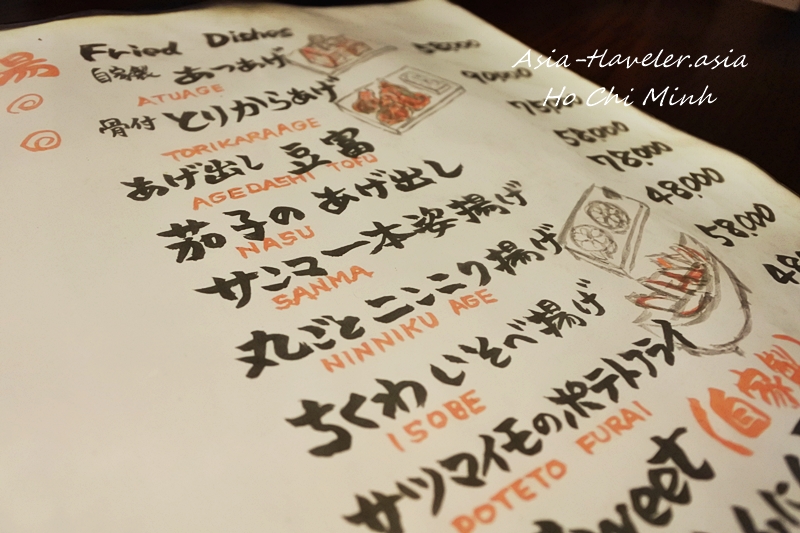 Asia-Haveler.asia
Ho Chi Minh
揚
Fried Dishes
自家製 あつあげ 58000
ATUAGE
骨付 とりからあげ 90000
TORIKARAAGE
あげ出し豆富
AGEDASHI TOFU
58000
茄子のあげ出し 78000
NASU
サンマ一本姿揚げ 48,000
SANMA
丸ごとニンニク揚げ 58,000
NINNIKU AGE
ちくわいそべ揚げ
ISOBE
サツマイモのポテトフライ
POTETO FURAI
(自家製)